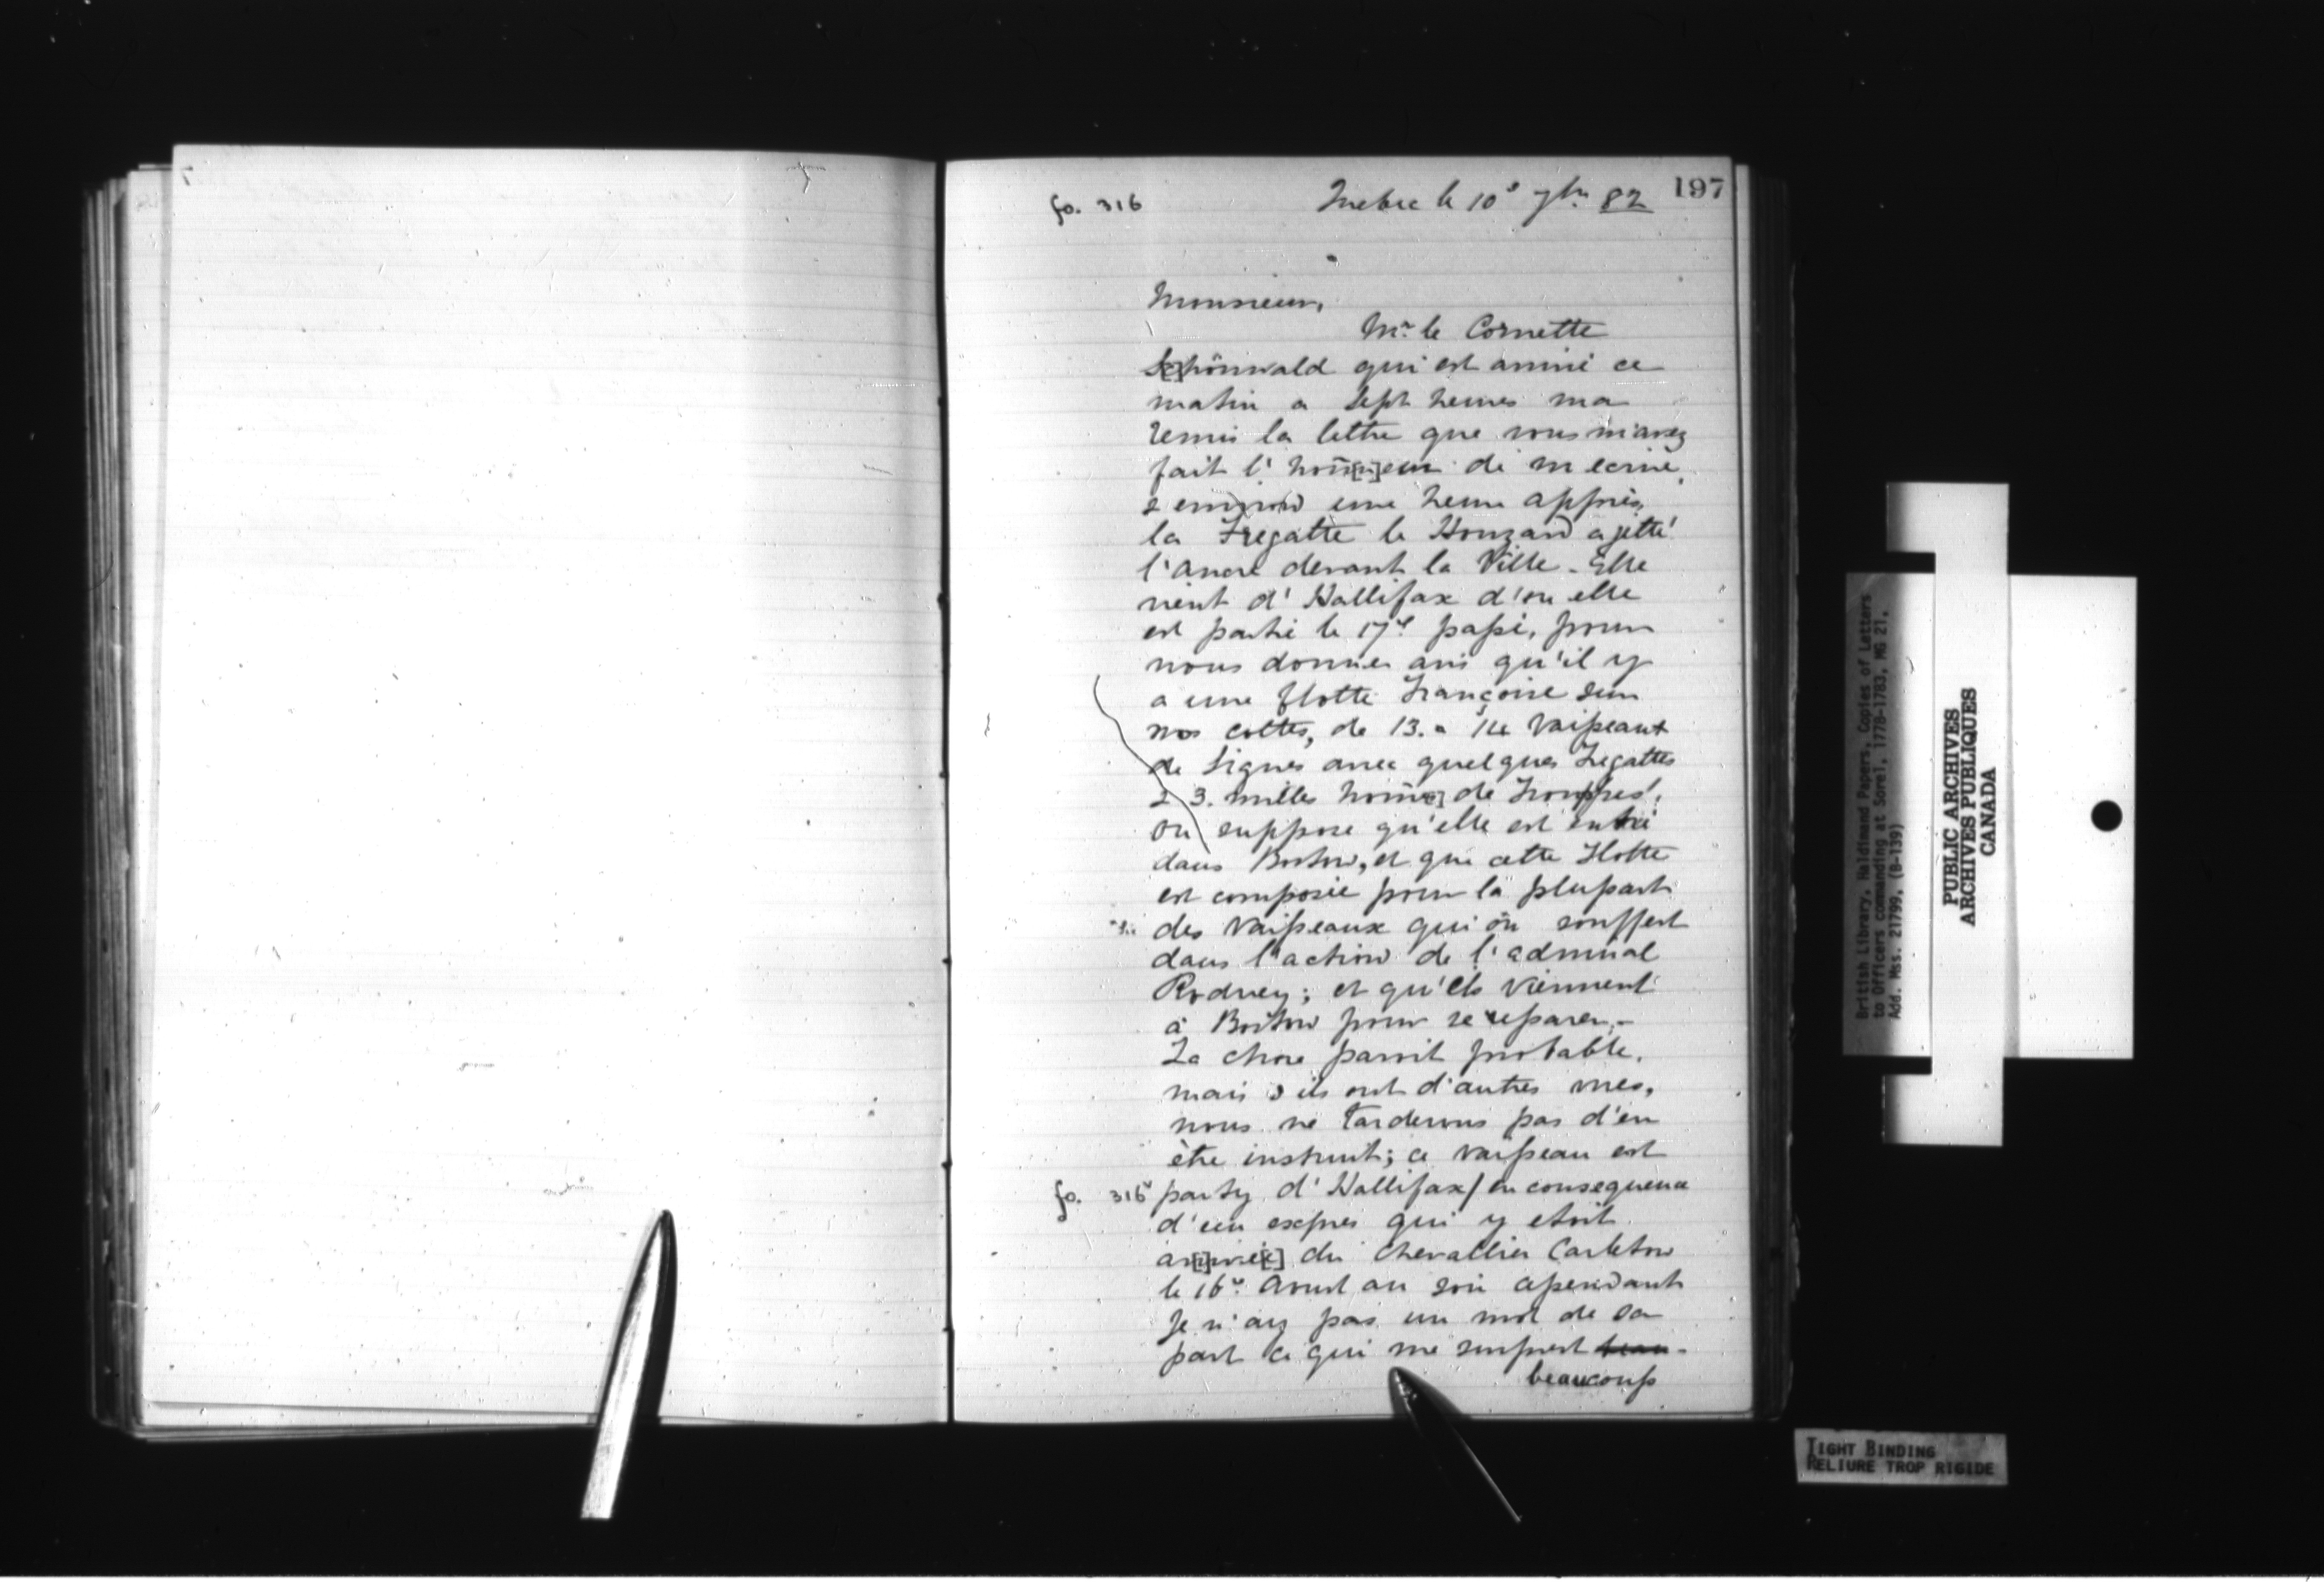 197
fo. 316 Quebec le 10e 7br. 82
Monsieur,
Mr. le Cornette
S[c]hönwald qui est arrivé ce
matin a Sept heures ma
remis la lettre que vous m'avez
fait l'hoñ[n]eur de m ecrire,
& environ une heure apprès,
la Fregatte le Houzard a jetté
l'ancre devant la Ville. Elle
vient d'Hallifax d'ou elle
est partie le 17e passé, pour
nous donner avis qu'il y
a une flotte Françoise sur
nos cottes, de 13. a 14 Vaisseaux
de Lignes avec quelques Fregattes
& 3. milles hom̃e[s] de Trouppes,
on suppose qu'elle est entré
dans Boston, et que cette Flotte
est composée pour la plupart
des Vaisseaux qui on souffert
dans l'action de l'admiral
Rodney; et qu'ils viennent
à Boston pour se reparer.-
La chose paroit probable,
mais s ils ont d'autres vues,
nous ne tarderons pas d'en
être instruit; ce vaisseau est
fo. 316v party d'Hallifax/ en consequence
d'un expres qui y etoit
ar[r]ivé[e] du Chevallier Carleton
le 16e. Aoust au soir cependant
Je n'ay pas un mot de sa
part ce qui me surprent beau-
beaucoup
British Library, Haldimand Papers, Copies of Letters
to Officers commanding at Sorel, 1778-1783, MG 21,
Add. Mss. 21799, (B-139)
PUBLIC ARCHIVES
ARCHIVES PUBLIQUES
CANADA
TIGHT BINDING
RELIURE TROP RIGIDE